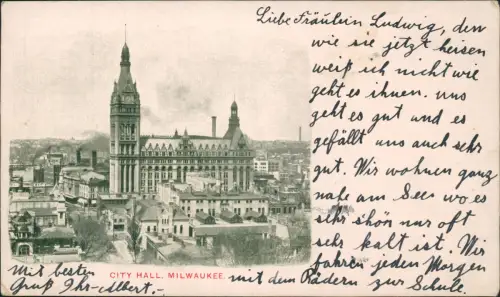 Liebe Fräulein Ludwig, den
wie sie jetzt heisen
weiß ich nicht wie
geht es ihnen. uns
geht es gut und es
gefällt uns auch sehr
gut. Wir wohnen ganz
nahe am See wo es
sehr schön nur oft
sehr kalt ist. Wir
fahren jeden Morgen
mit dem Rädern zur Schule.
Mit besten
Gruß Ihr Albert.-
CITY HALL, MILWAUKEE.